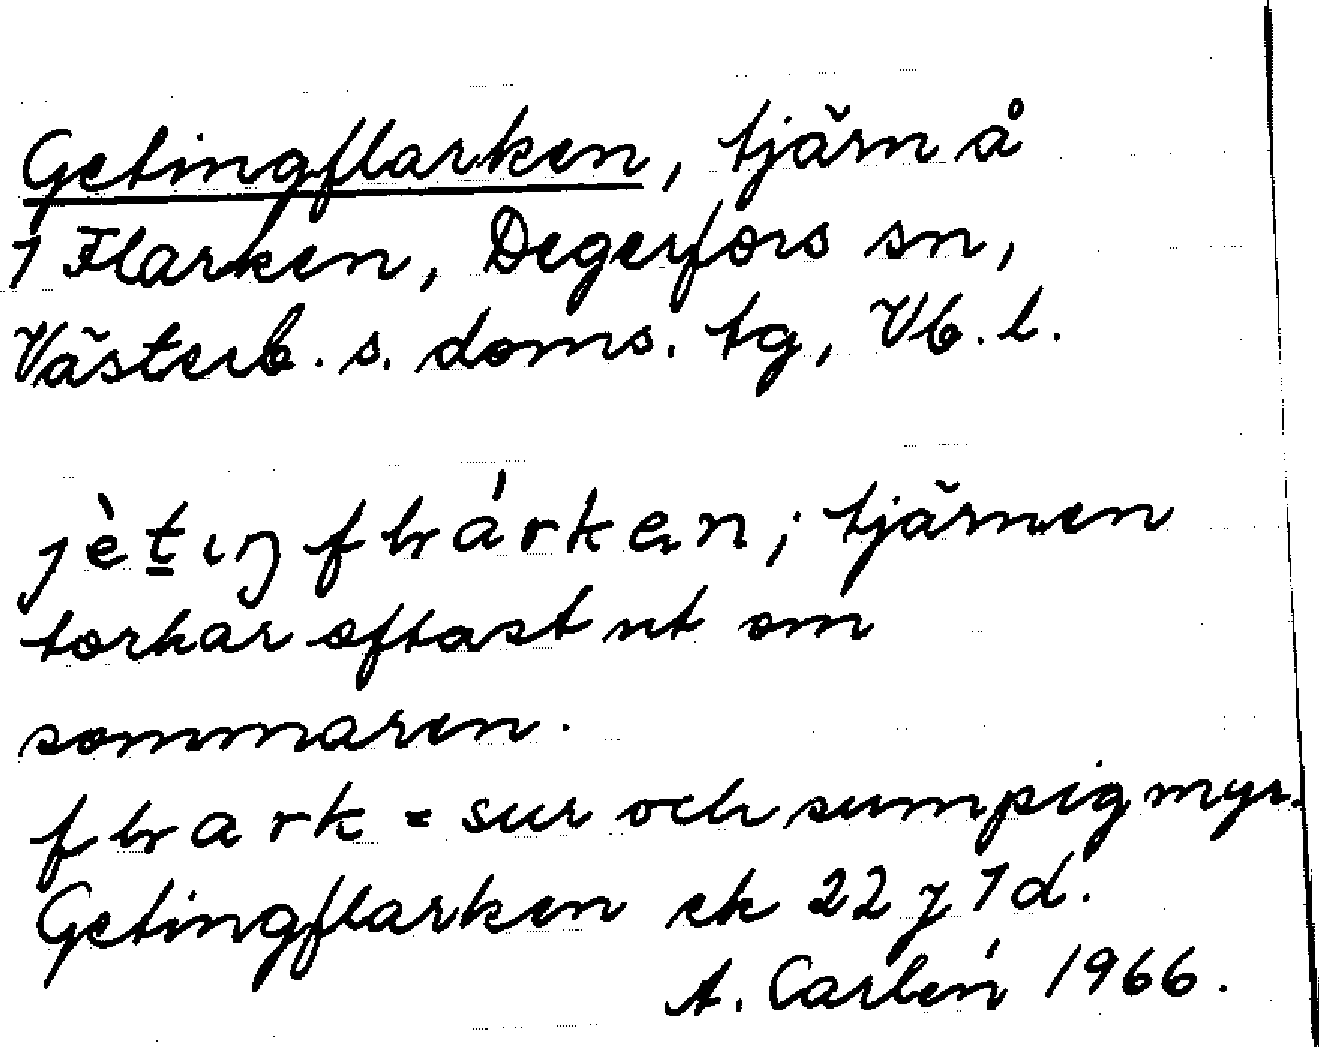 Getingflarken, tjärn å
1 Flarken, Degerfors sn,
Västerb. s. doms. tg, Vb. l.
jètıŋflárken; tjärnen
torkar oftast ut om
sommaren.
flark = sur och sumpig myr.
Getingflarken ek 22 J 1 d.
A. Carlén 1966.